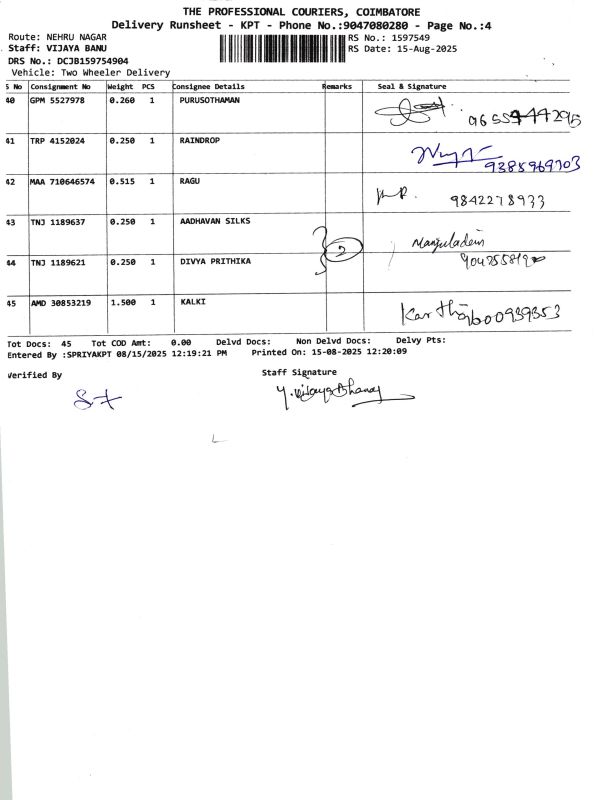 THE PROFESSIONAL COURIERS, COIMBATORE
Delivery Runsheet - KPT - Phone No.:9047080280 - Page No.:4
Route: NEHRU NAGAR RS No.: 1597549
Staff: VIJAYA BANU RS Date: 15-Aug-2025
DRS No.: DCJB159754904
Vehicle: Two Wheeler Delivery
S No Consignment No Weight PCS Consignee Details Remarks Seal & Signature
40 GPM 5527978 0.260 1 PURUSOTHAMAN
41 TRP 4152024 0.250 1 RAINDROP 9385969703
42 MAA 710646574 0.515 1 RAGU 9842278933
43 TNJ 1189637 0.250 1 AADHAVAN SILKS
2
44 TNJ 1189621 0.250 1 DIVYA PRITHIKA
45 AMD 30853219 1.500 1 KALKI
Tot Docs: 45 Tot COD Amt: 0.00 Delvd Docs: Non Delvd Docs: Delvy Pts:
Entered By :SPRIYAKPT 08/15/2025 12:19:21 PM Printed On: 15-08-2025 12:20:09
Verified By Staff Signature